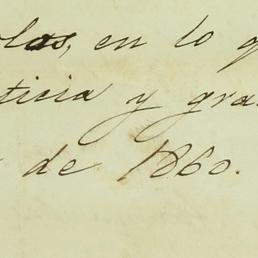 olas, en lo q
ticia y gra
de 1860.